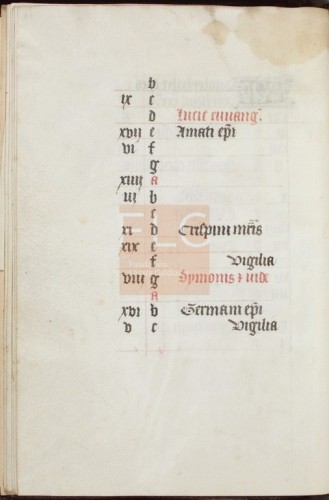 b
ix c
d Lucie euuang.
xvij e Amati ep̄i
vi f
g
xiiij a
iij b
c
xi d Crispini mr̄is
xix e
f Vigilia
viij g Symonis ⁊ iude
a
xvi b Germani ep̄i
v c Vigilia
FLG